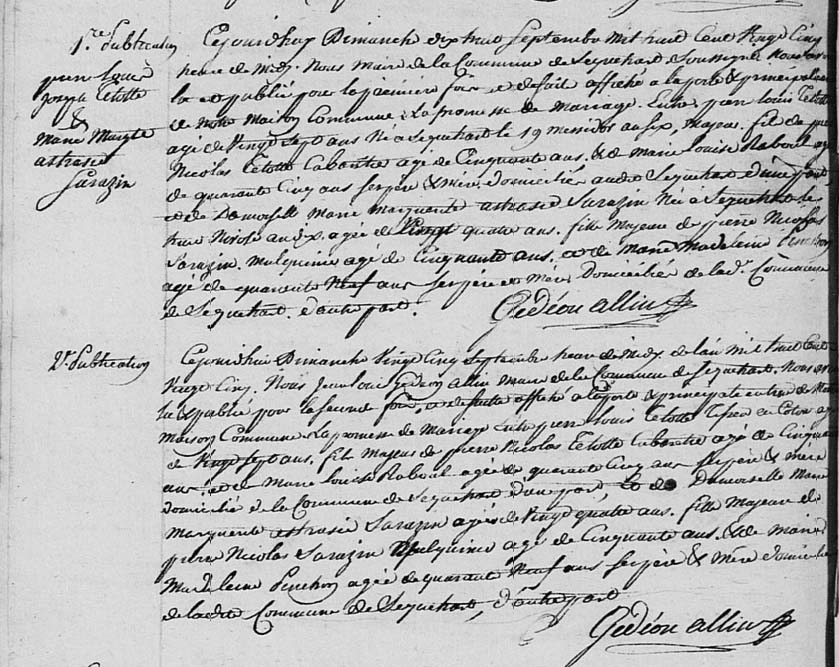 1.re Publication
pierre Louis
Joseph Tetotte
&
Marie Margte
astrasie
Sarazin
Cejourdhuy Dimanche dix huit Septembre Mil huit Cent Vingt Cinq
heure de Midy. Nous Maire de la Commune de Sequehart Soussigné
lu et publié pour la premiere fois, et de fait affiché a la porte & principale
de notre Maison Commune. La promesse de Mariage. Entre pierre Louis Tetotte
agé de Vingt Sept ans Né a Sequehart le 19 Messidor an Six, Majeur. fils de pierre
Nicolas Tetotte Cabaretier agé de Cinquante ans. & de Marie Louise Raboul
de quarante Cinq ans Ses père & mère domiciliés audit Sequehart d'une part
et de Damoiselle Marie Marguerite astrasie Sarazin Née à Sequehart le
huit Nivose an dix. agée de Vingt quatre ans. fille Majeure de pierre Nicolas
Sarazin. Mulquinier agé de Cinquante ans. et de Marie Madeleine Penchon
agée de quarante Neuf ans Ses père et Mère Domiciliés de lad.e Commune
de Sequehart. d'autre part.
Gédéon allin
2.e Publication
Cejourdhui Dimanche Vingt Cinq Septembre heure de Midy. de l'an Mil huit Cent
Vingt Cinq. Nous Jean Louis Gédéon allin Maire de la Commune de Sequehart. Nous
lu & publié pour la Seconde fois, et de fait affiché a la porte & principale entrée de
Maison Commune. La promesse de Mariage Entre pierre Louis Tetotte
de Vingt Sept ans. fils Majeur de pierre Nicolas Tetotte Cabaretier agé de Cinquante
ans. et de Marie Louise Raboul agée de quarante Cinq ans Ses père & mère
domiciliés de la Commune de Sequehart d'une part, Et de Damoiselle Marie
Marguerite astrasie Sarazin agée de Vingt quatre ans. fille Majeure de
pierre Nicolas Sarazin Mulquinier agé de Cinquante ans. & de Marie
Madeleine Penchon agée de quarante Neuf ans Ses père & mère
de ladite Commune de Sequehart, d'autre part
Gédéon allin